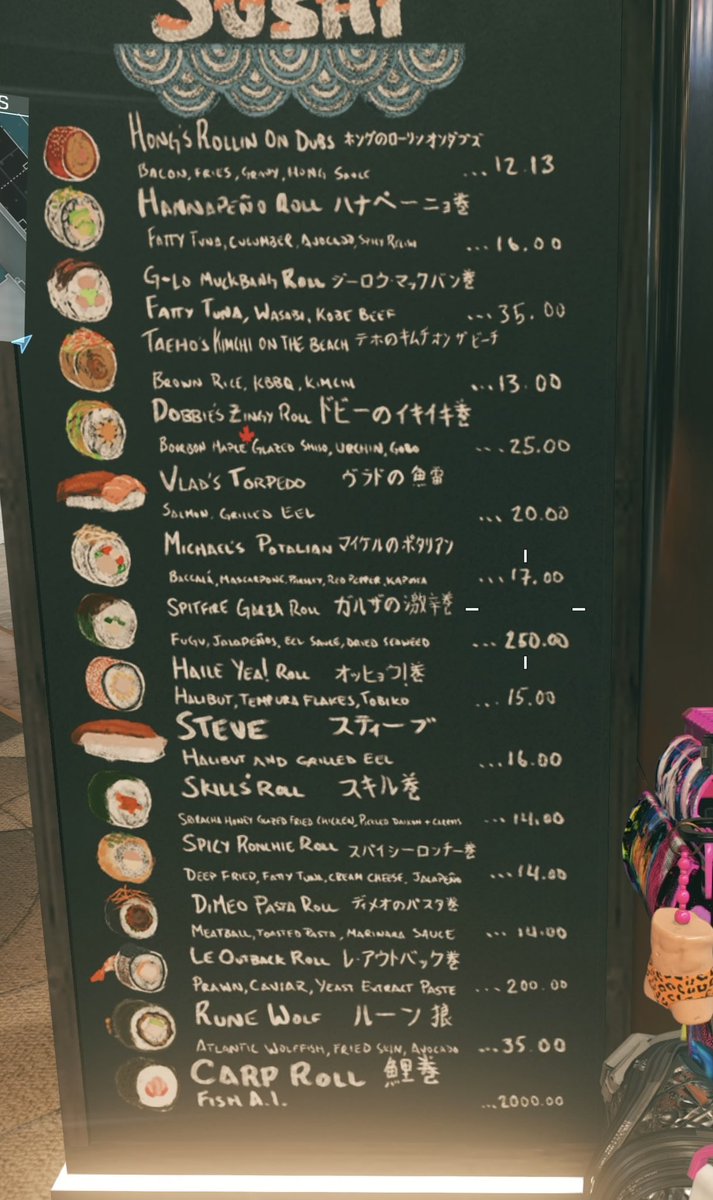 S
SUSHI
HONG'S ROLLIN ON DUBS ホングのローリンオンダブズ
BACON, FRIES, GRAVY, HONG SAUCE ...12.13
HANNAPEÑO ROLL ハナペーニョ巻
FATTY TUNA, CUCUMBER, AVOCADO, SPICY RELISH ...16.00
G-LO MUCKBANG ROLL ジーロウ・マックバン巻
FATTY TUNA, WASABI, KOBE BEEF ...35.00
TAEHO'S KIMCHI ON THE BEACH テホのキムチオンザビーチ
BROWN RICE, KBBQ, KIMCHI ...13.00
DOBBIE'S ZINGY ROLL ドビーのイキイキ巻
BOURBON MAPLE GLAZED SHISO, URCHIN, GOBO ...25.00
VLAD'S TORPEDO ヴラドの魚雷
SALMON, GRILLED EEL ...20.00
MICHAEL'S POTALIAN マイケルのポタリアン
BACCALÀ, MASCARPONE, PARSLEY, RED PEPPER, ...17.00
SPITFIRE GARZA ROLL ガルザの激辛巻
FUGU, JALAPEÑOS, EEL SAUCE, DRIED SEAWEED ...250.00
HAILE YEA! ROLL オッヒョウ!巻
HALIBUT, TEMPURA FLAKES, TOBIKO ...15.00
STEVE スティーブ
HALIBUT AND GRILLED EEL ...16.00
SKILLS' ROLL スキル巻
SRIRACHA HONEY GLAZED FRIED CHICKEN, PICKLED DAIKON + CARROTS ...14.00
SPICY RONCHIE ROLL スパイシーロンチー巻
DEEP FRIED, FATTY TUNA, CREAM CHEESE, JALAPEÑO ...14.00
DIMEO PASTA ROLL ディメオのパスタ巻
MEATBALL, TOASTED PASTA, MARINARA SAUCE ...14.00
LE OUTBACK ROLL レ・アウトバック巻
PRAWN, CAVIAR, YEAST EXTRACT PASTE ...200.00
RUNE WOLF ルーン狼
ATLANTIC WOLFFISH, FRIED SKIN, AVOCADO ...35.00
CARP ROLL 鯉巻
FISH A.I. ...2000.00